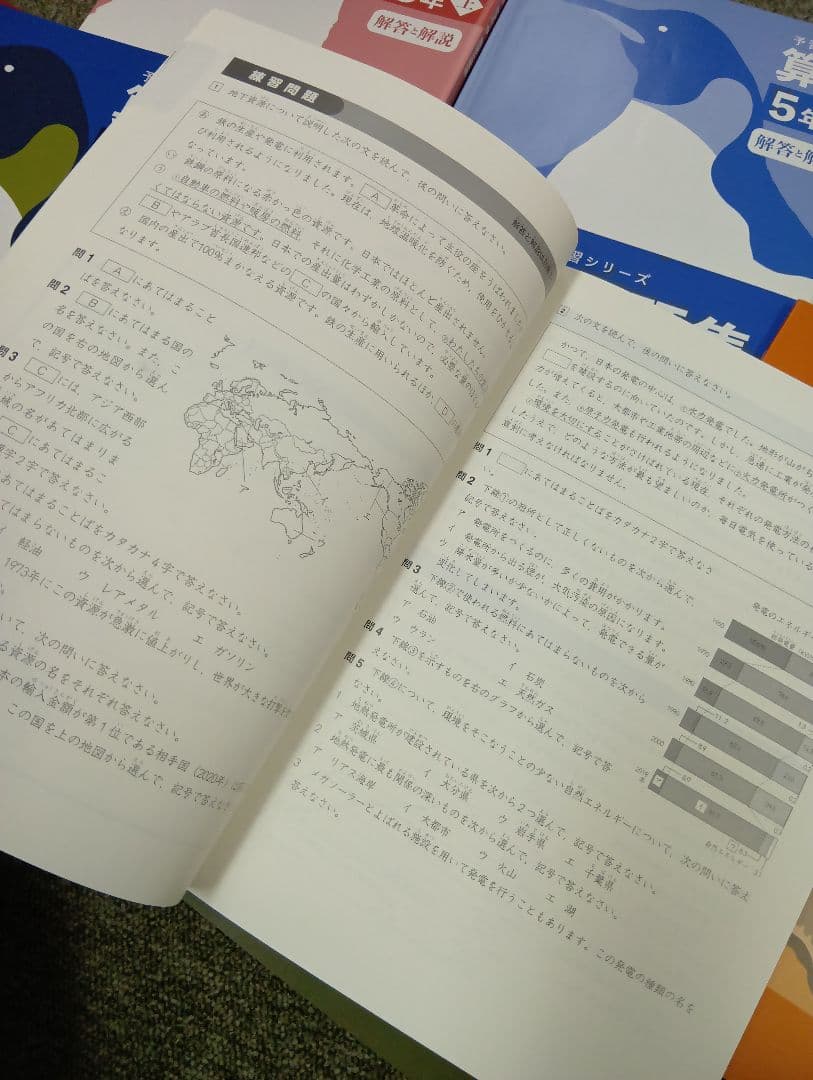 5年 上
解答と解説
算
5年
解答と解
習シリーズ
練習問題
1 地下資源について説明した次の文を読んで、後の問いに答えなさい。
あ 鉄の生産や発電に利用されます。 A 革命によって主役の座をうばわれましたが
び利用されるようになりました。現在は、地球温暖化を防ぐため、使用を
なっています。
い 鉄鋼の原料になる赤かっ色の資源です。日本ではほとんど産出されません。
う ①自動車の燃料や暖房の燃料、それに化学工業の原料として、
くてはならない資源です。日本での産出量はわずかしかないので、
B やアラブ首長国連邦などの C の国々から輸入しています。
え 国内の産出で100%まかなえる資源です。鉄の生産に用いられるほか、 D
なります。
問1 A にあてはまること
ばを答えなさい。
問2 B にあてはまる国の
名を答えなさい。また、こ
の国を右の地図から選ん
で、記号で答えなさい。
問3 C には、アジア西部
からアフリカ北部に広がる
域の名があてはまりま
C にあてはまるこ
漢字2字で答えなさい。
あてはまることばをカタカナ4字で答えなさい。
てはまらないものを次から選んで、記号で答えなさい。
イ 軽油 ウ レアメタル エ ガソリン
1973年にこの資源が急激に値上がりし、世界が大きな打撃を
いて、次の問いに答えなさい。
る資源の名をそれぞれ答えなさい。
本の輸入金額が第1位である相手国(2020年)
この国を上の地図から選んで、記号で答えなさ
ア
イ
解答と解説は
2 次の文を読んで、後の問いに答えなさい。
かつて、日本の発電の中心は、①水力発電でした。地形が山がち
を建設するのに向いていたのです。しかし、急速に工業が発
力が増えてくると、大都市や工業地帯の周辺などに②火力発電所がつく
した。また、③原子力発電も行われるようになりました。
④環境を大切にすることがさけばれている現在、それぞれの発電方法の
したうえで、どのような方法が最も望ましいのか、毎日電気を使っている
真剣に考えなければなりません。
問1 にあてはまることばをカタカナ2字で答えなさ
い。
問2 下線①の短所として正しくないものを次から選んで、
記号で答えなさい。
ア 発電所をつくるのに、多くの費用がかかります。
イ 発電所から出る煙が、大気汚染の原因になります。
ウ 降水量が多いか少ないかによって、発電できる量が
変化してしまいます。
問3 下線②で使われる燃料にあてはまらないものを次から
選んで、記号で答えなさい。
ア 石油 イ 石炭
ウ ウラン エ 天然ガス
問4 下線③を示すものを右のグラフから選んで、記号で答
えなさい。
問5 下線④について、環境をそこなうことの少ない自然エネルギーについて、次の問いに答え
なさい。
1 地熱発電所が建設されている県を次から2つ選んで、記号で答えなさい。
ア 茨城県 イ 大分県 ウ 岩手県 エ 千葉県
2 地熱発電に最も関係の深いものを次から選んで、記号で答えなさい。
ア リアス海岸 イ 大都市 ウ 火山 エ 湖
3 メガソーラーとよばれる施設を用いて発電を行うこともあります。この発電の種類の名を
答えなさい。
発電のエネルギー
1950
1970
1980
1990
2000